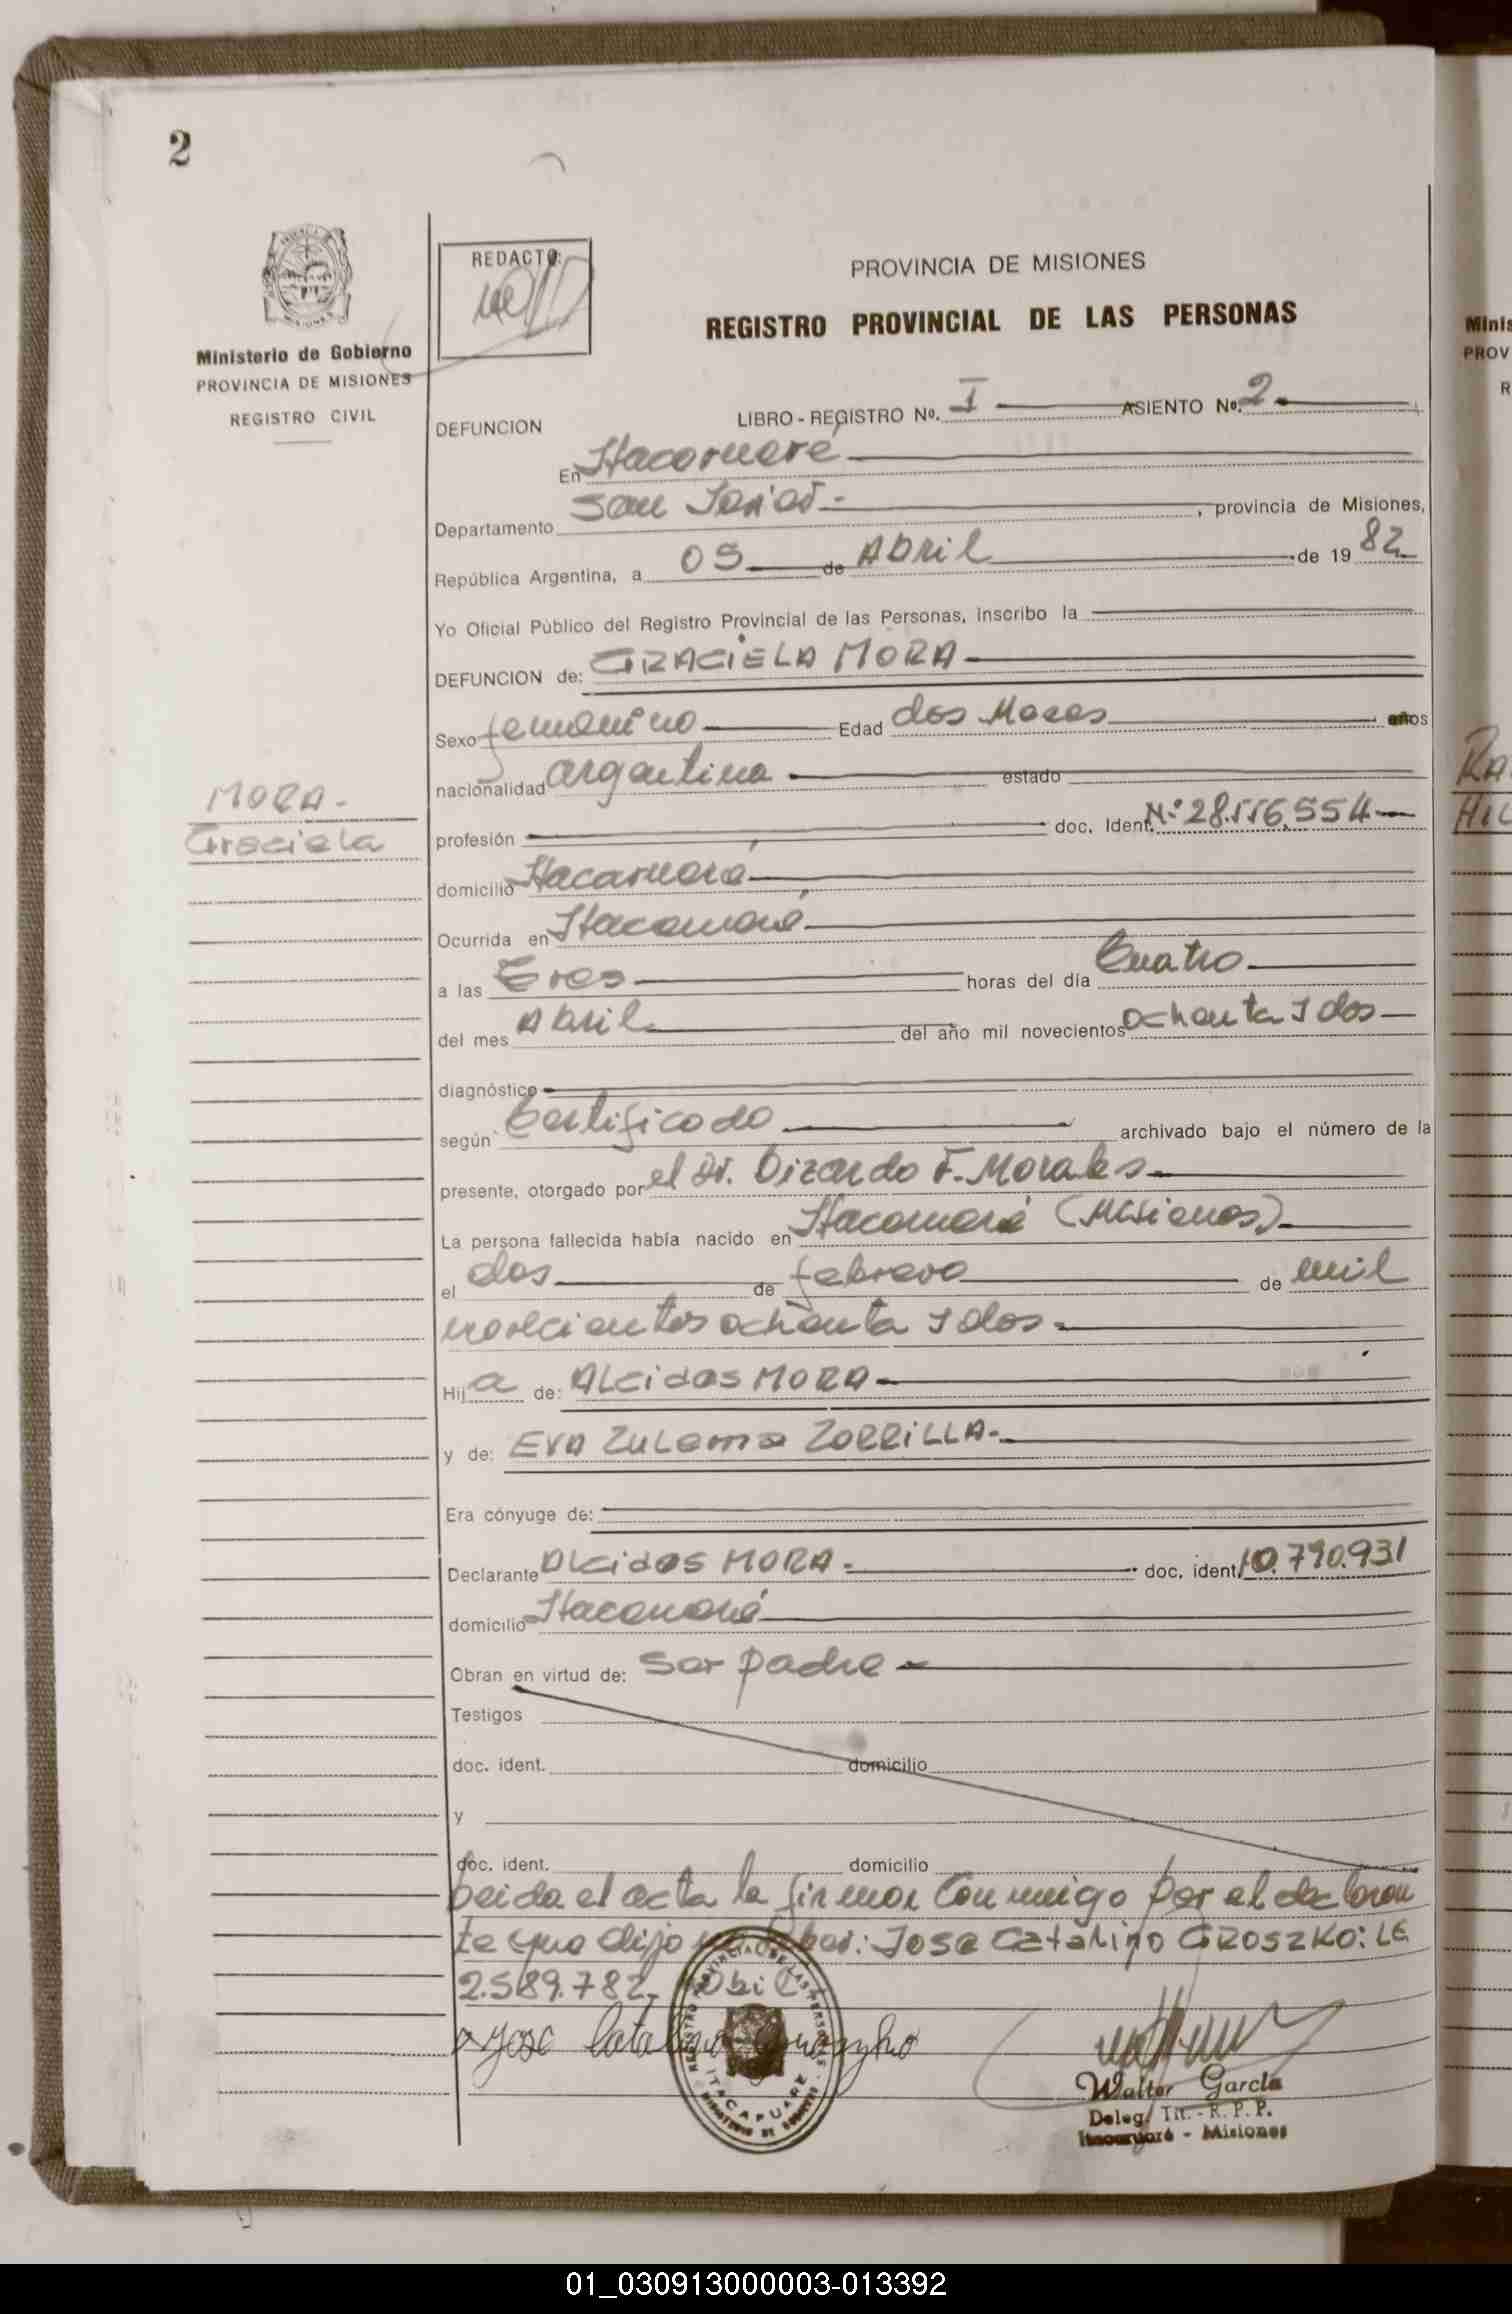 2
REDACTO:
PROVINCIA DE MISIONES
REGISTRO PROVINCIAL DE LAS PERSONAS
Ministerio de Gobierno
PROVINCIA DE MISIONES
REGISTRO CIVIL
DEFUNCION
LIBRO - REGISTRO No. I ASIENTO No. 2
En Itacaruaré
Departamento San Javier - , provincia de Misiones,
República Argentina, a 05 de Abril de 19 82
Yo Oficial Público del Registro Provincial de las Personas, inscribo la
DEFUNCION de: GRACIELA MORA
Sexo femenino Edad dos Meses años
nacionalidad argentina estado
MORA -
Graciela
profesión doc. Ident. Nº 28.556.554
domicilio Itacaruaré
Ocurrida en Itacaruaré
a las tres horas del día Cuatro
del mes Abril del año mil novecientos ochenta y dos
diagnóstico
según Certificado archivado bajo el número de la
presente, otorgado por el Dr. F. Morales
La persona fallecida había nacido en Itacaruaré (Misiones)
el dos de febrero de mil
novecientos ochenta y dos
Hij a de: Alcides MORA
y de: EVA Zulema ZORRILLA
Era cónyuge de:
Declarante Alcides MORA doc. ident. 10.790.931
domicilio Itacaruaré
Obran en virtud de: ser padre
Testigos
doc. ident. domicilio
y
doc. ident. domicilio
Leida el acta la firman Conmigo por el declaran
te que dijo no saber: Jose Catalino GROSZKO: LE
2.589.782
Jose Catalino
REGISTRO PROVINCIAL DE LAS PERSONAS
ITACARUARE
Walter García
Deleg. Tit. - R. P. P.
Itacaruaré - Misiones
Minis
PROV
R
RA
HIL
01_030913000003-013392